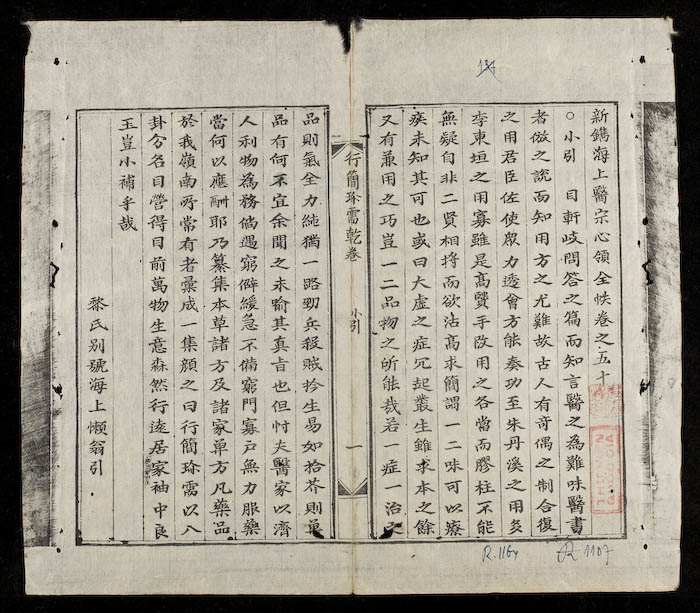 新鐫海上醫宗心領全帙卷之五十
○小引 目軒岐問答之篇而知言醫之為難味醫書
者倣之說而知用方之尤難故古人有奇偶之制合復
之用君臣佐使衆力透會方能奏功至朱丹溪之用多
李東垣之用寡雖是高贒手改用之各當而膠柱不能
無疑自非二贒相將而欲沽高求簡謂一二味可以療
疾未知其可也或曰大虛之症冗起叢生雖求本之餘
又有兼用之巧豈一二品物之所能哉若一症一治之
行簡珎需乾卷 小引 一
品則氣全力純猶一路勁兵殺賊捡生易如拾芥則單
品有何不宜余聞之未喻其真旨也但忖夫醫家以濟
人利物為務倘遇窮僻緩急不備窮門寡戶無力服藥
當何以應酬耶乃纂集本草諸方及諸家單方凡藥品
於我嶺南所常有者彙成一集顏之曰行簡珎需以八
卦分名目營得目前萬物生意森然行逵居家袖中良
玉豈小補乎哉
黎氏別號海上懶翁引
R.1164
R 1107